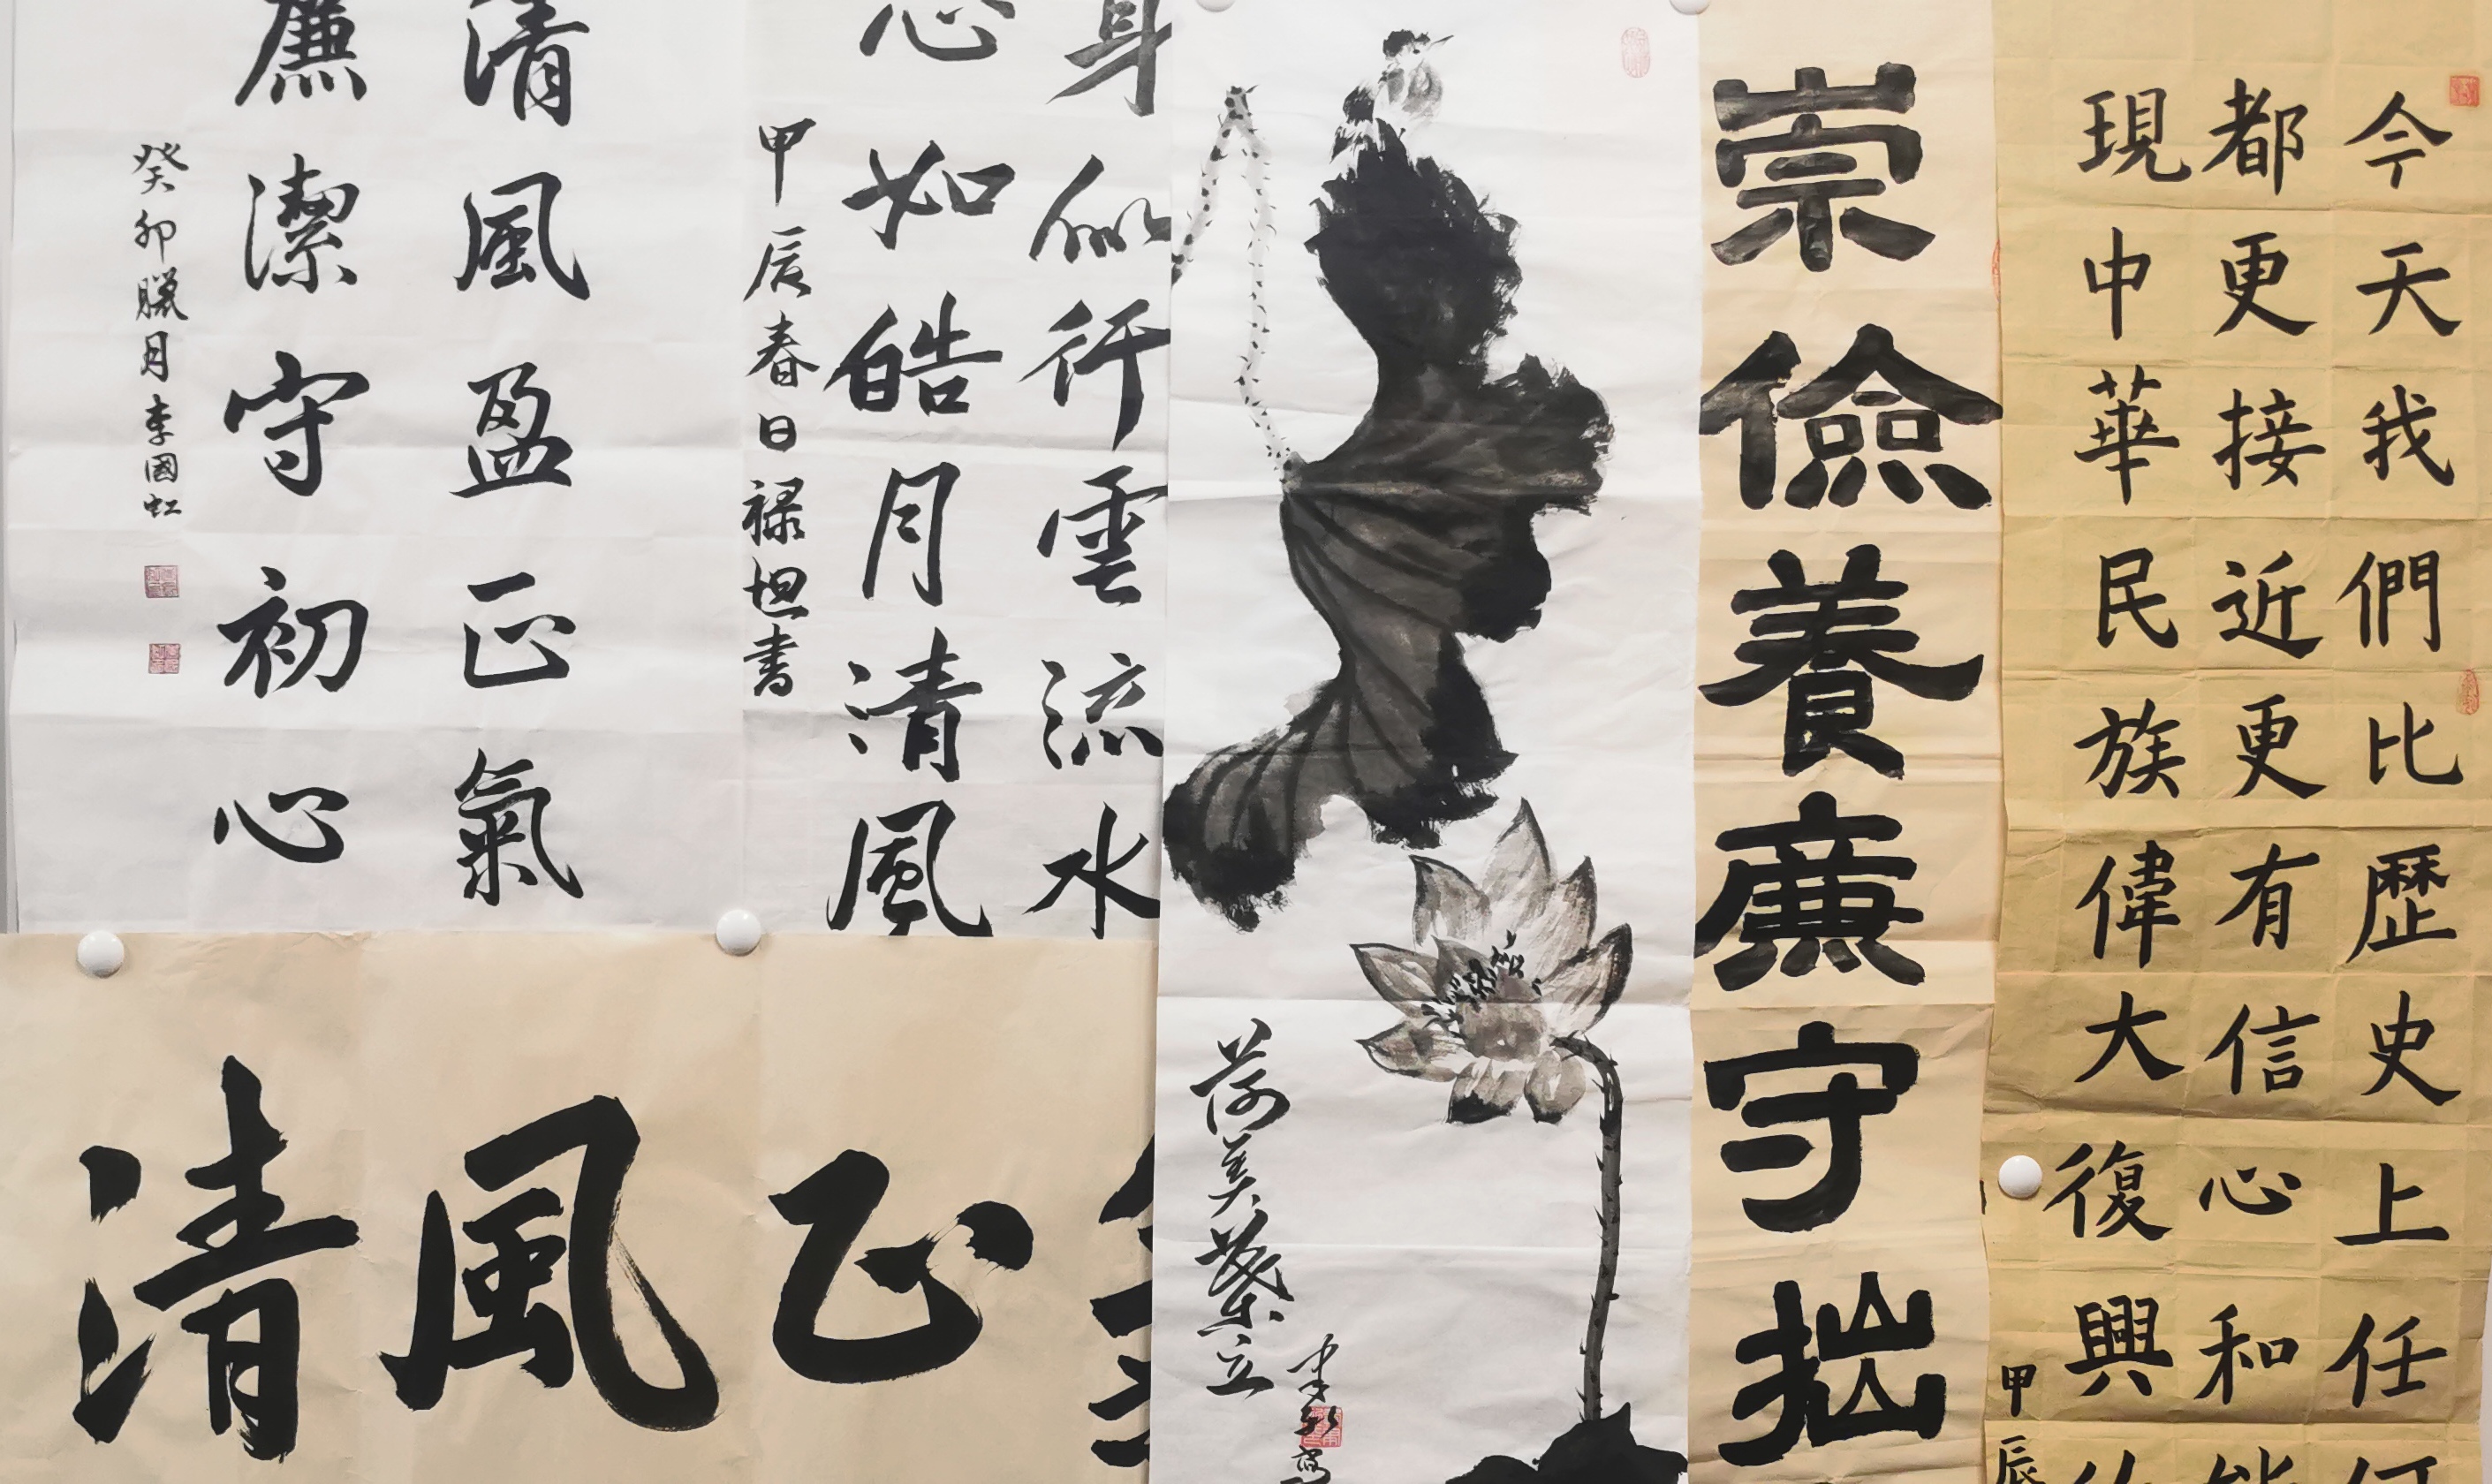 今天我們比歷史上任
都更接近更有信心和
現中華民族偉大復興
甲辰
崇儉養廉守拙
荷美葉立
身似行雲流水
心如皓月清風
甲辰春日禄坦书
清風盈正氣
廉潔守初心
癸卯臘月李國虹
清風正